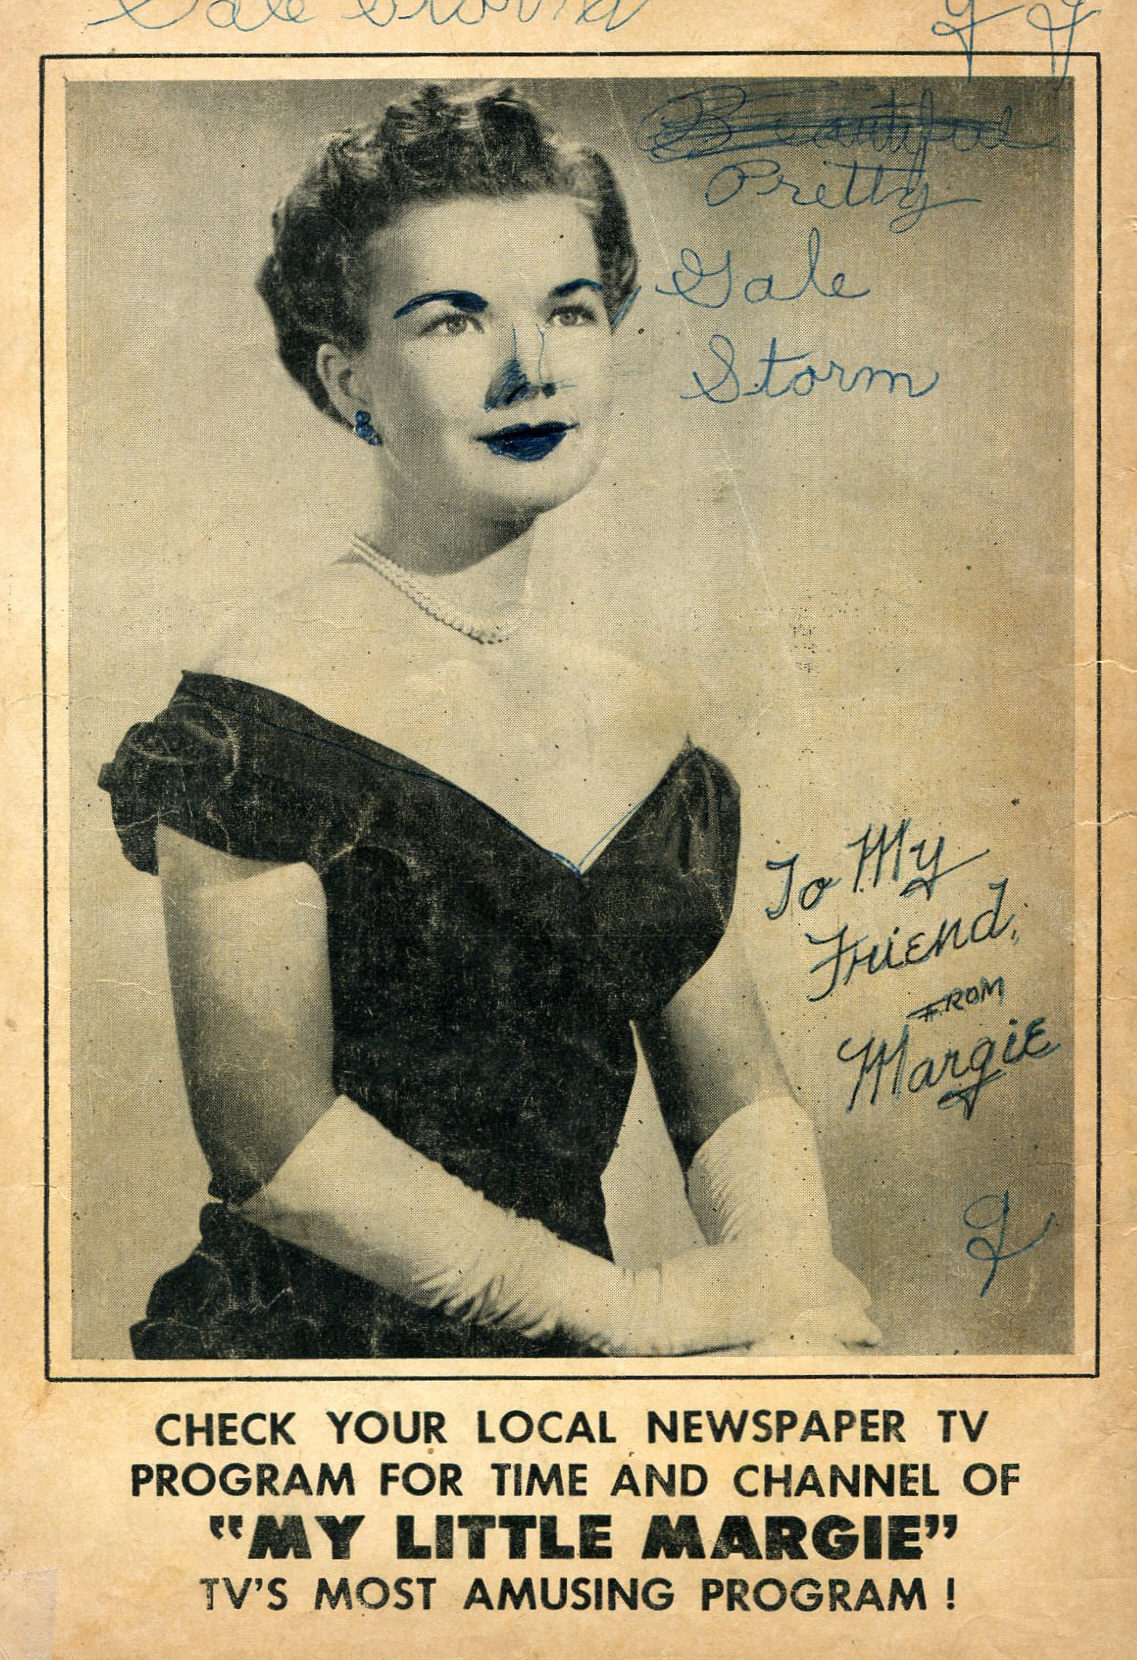 Gale Storm
Beautiful
Pretty
Gale
Storm
To My
Friend,
FROM
Margie
CHECK YOUR LOCAL NEWSPAPER TV
PROGRAM FOR TIME AND CHANNEL OF
"MY LITTLE MARGIE"
TV'S MOST AMUSING PROGRAM !